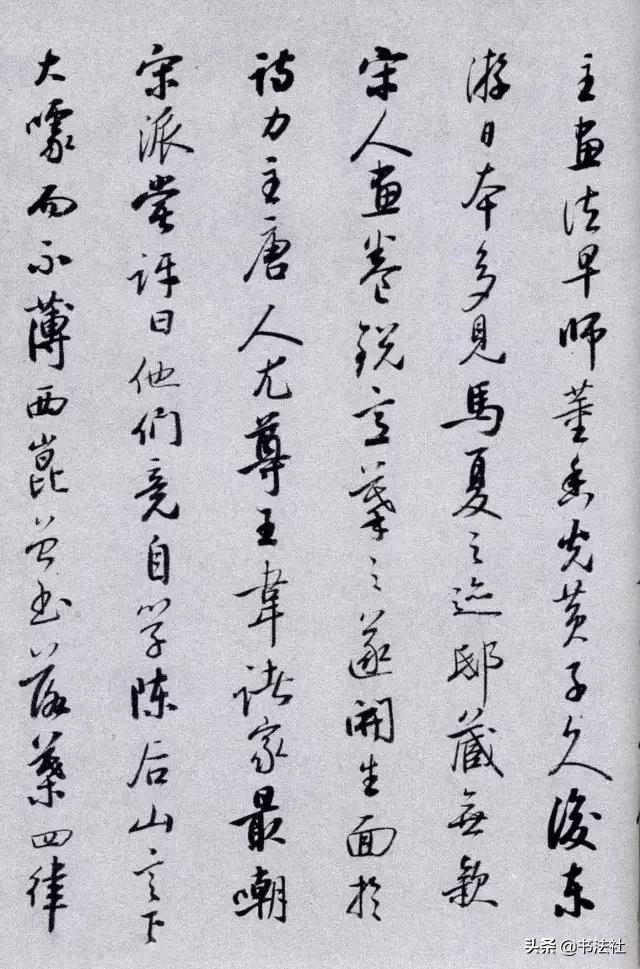 主画法早师董香光黄子久后东
游日本多见马夏之迹邸藏無款
宋人画卷锐意摹之遂開生面於
诗力主唐人尤尊王韋诸家最嘲
宋派尝评曰他們竟自学陈后山言下
大噱而不薄西崑曾书落葉四律
头条 @书法社